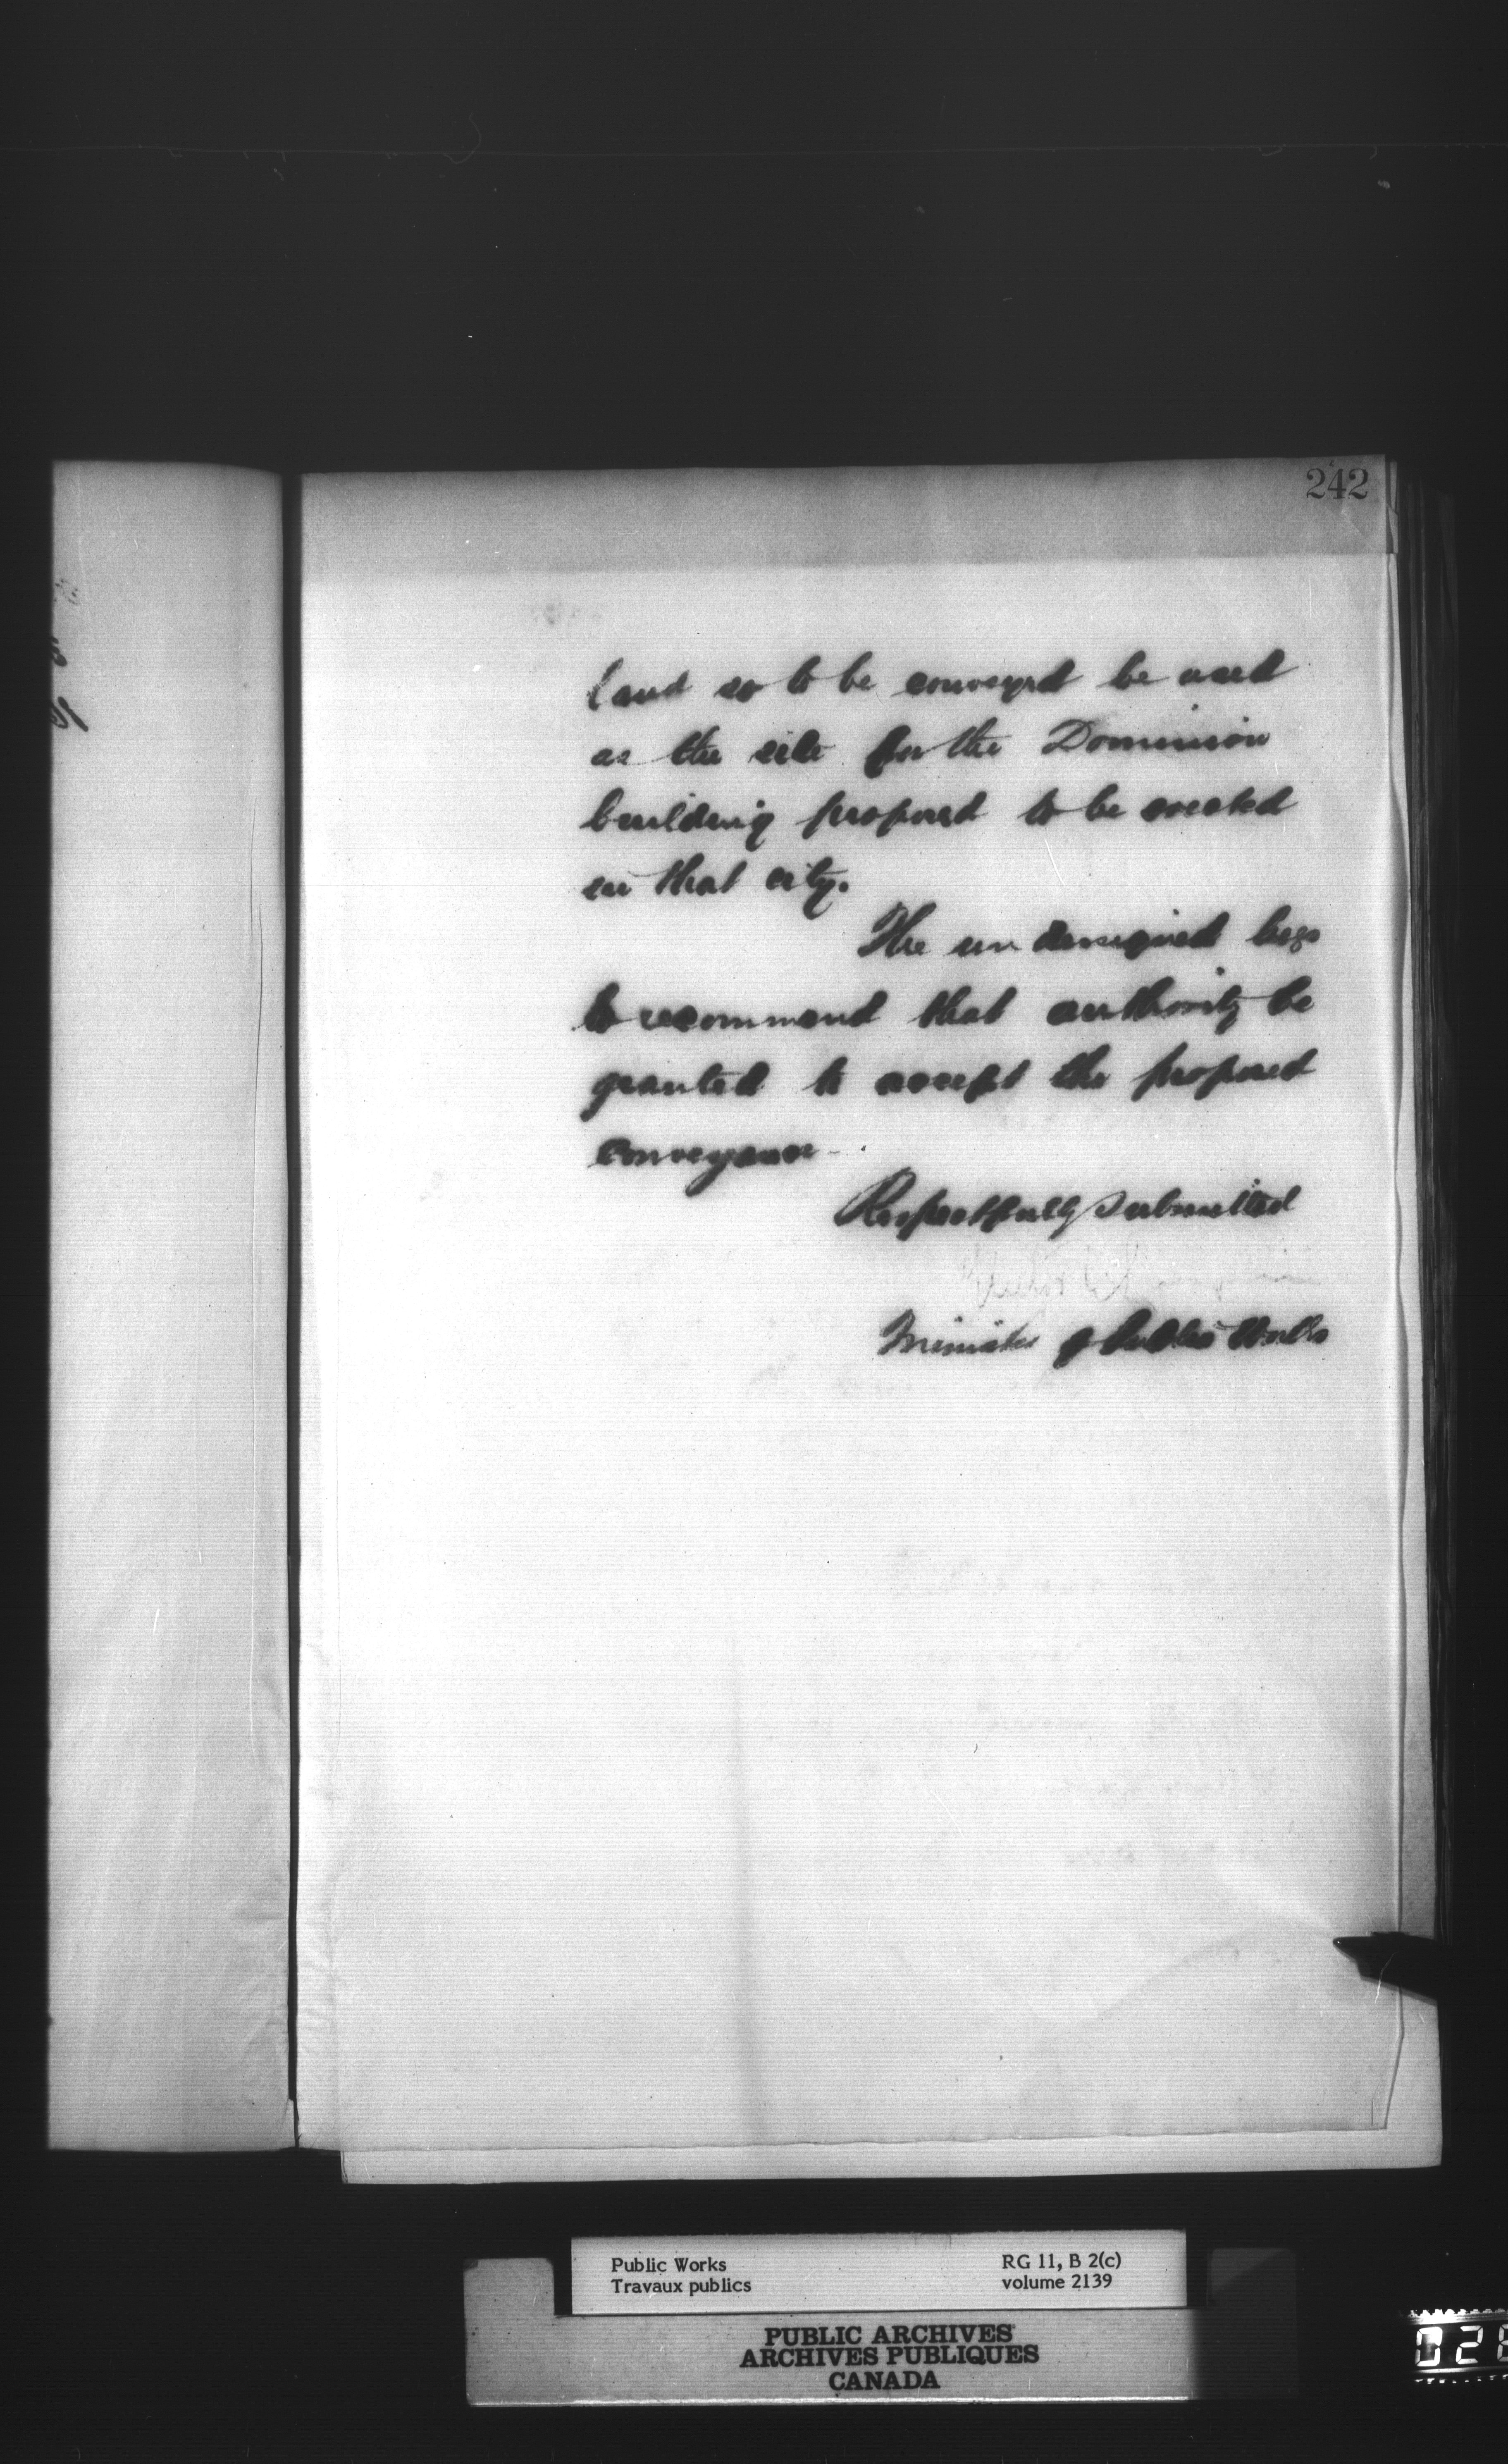 242
land so to be conveyed be used
as the site for the Dominion
building proposed to be erected
in that city.
The undersigned begs
to recommend that authority be
granted to accept the proposed
conveyance -
Respectfully submitted
Minister of Public Works
Public Works
Travaux publics
RG 11, B 2(c)
volume 2139
PUBLIC ARCHIVES
ARCHIVES PUBLIQUES
CANADA